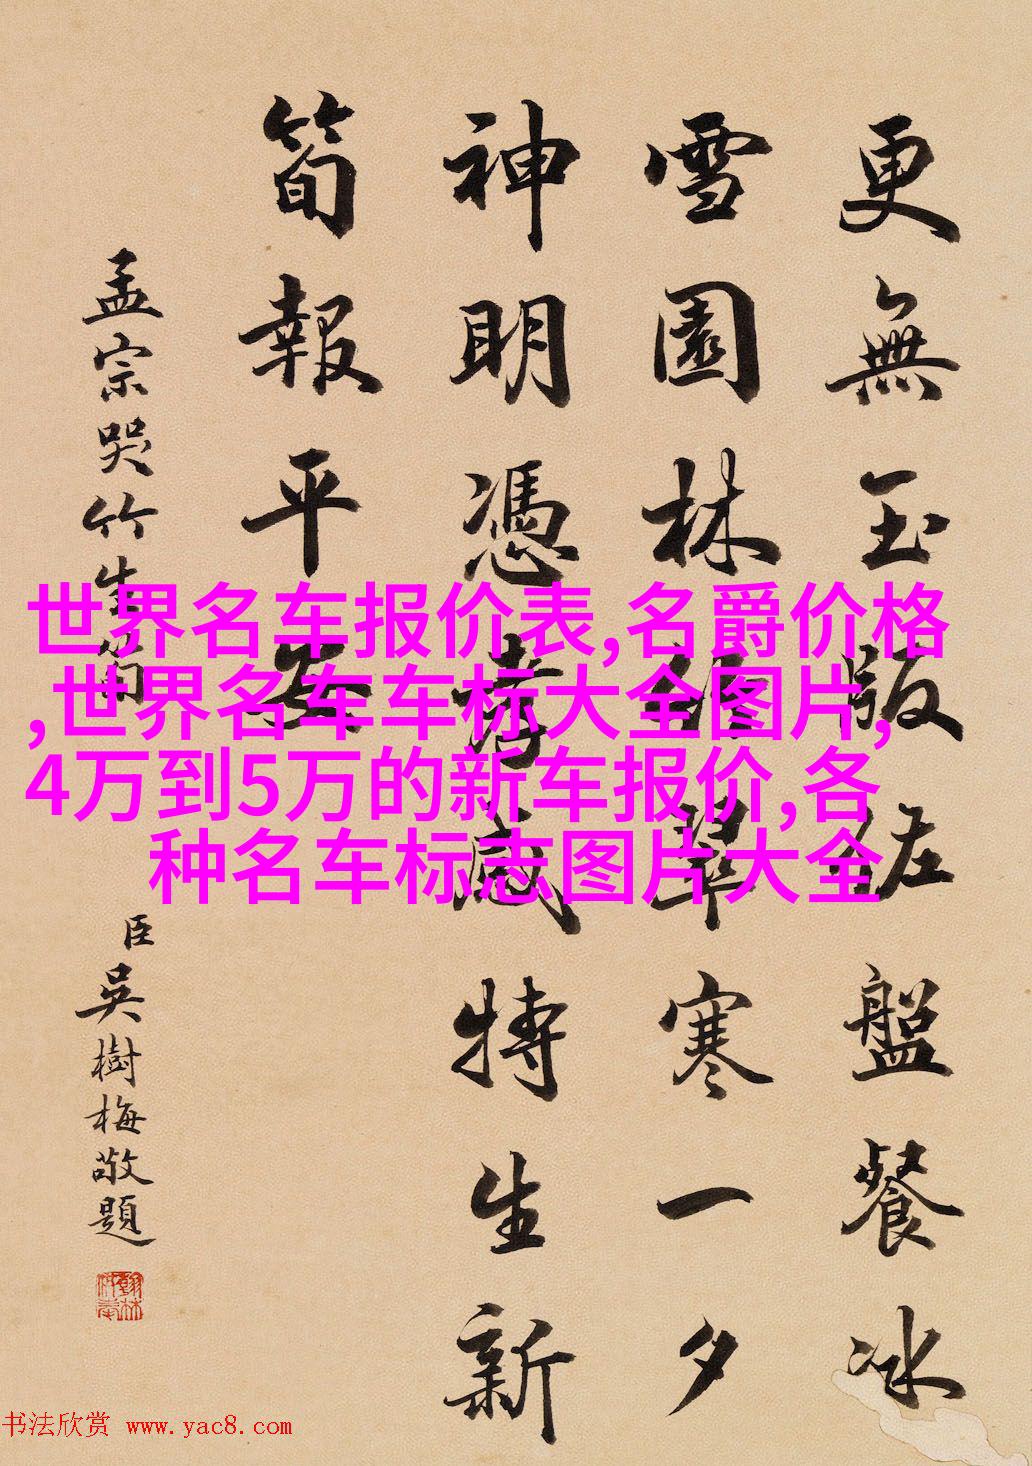 更無玉版佐盤餐冰
雪園林翠寒一夕
神明憑孝感特生新
筍報平安
孟宗哭竹生筍
臣吳樹梅敬題
世界名车报价表,名爵价格
,世界名车车标大全图片,
4万到5万的新车报价,各
种名车标志图片大全
书法欣赏 www.yac8.com